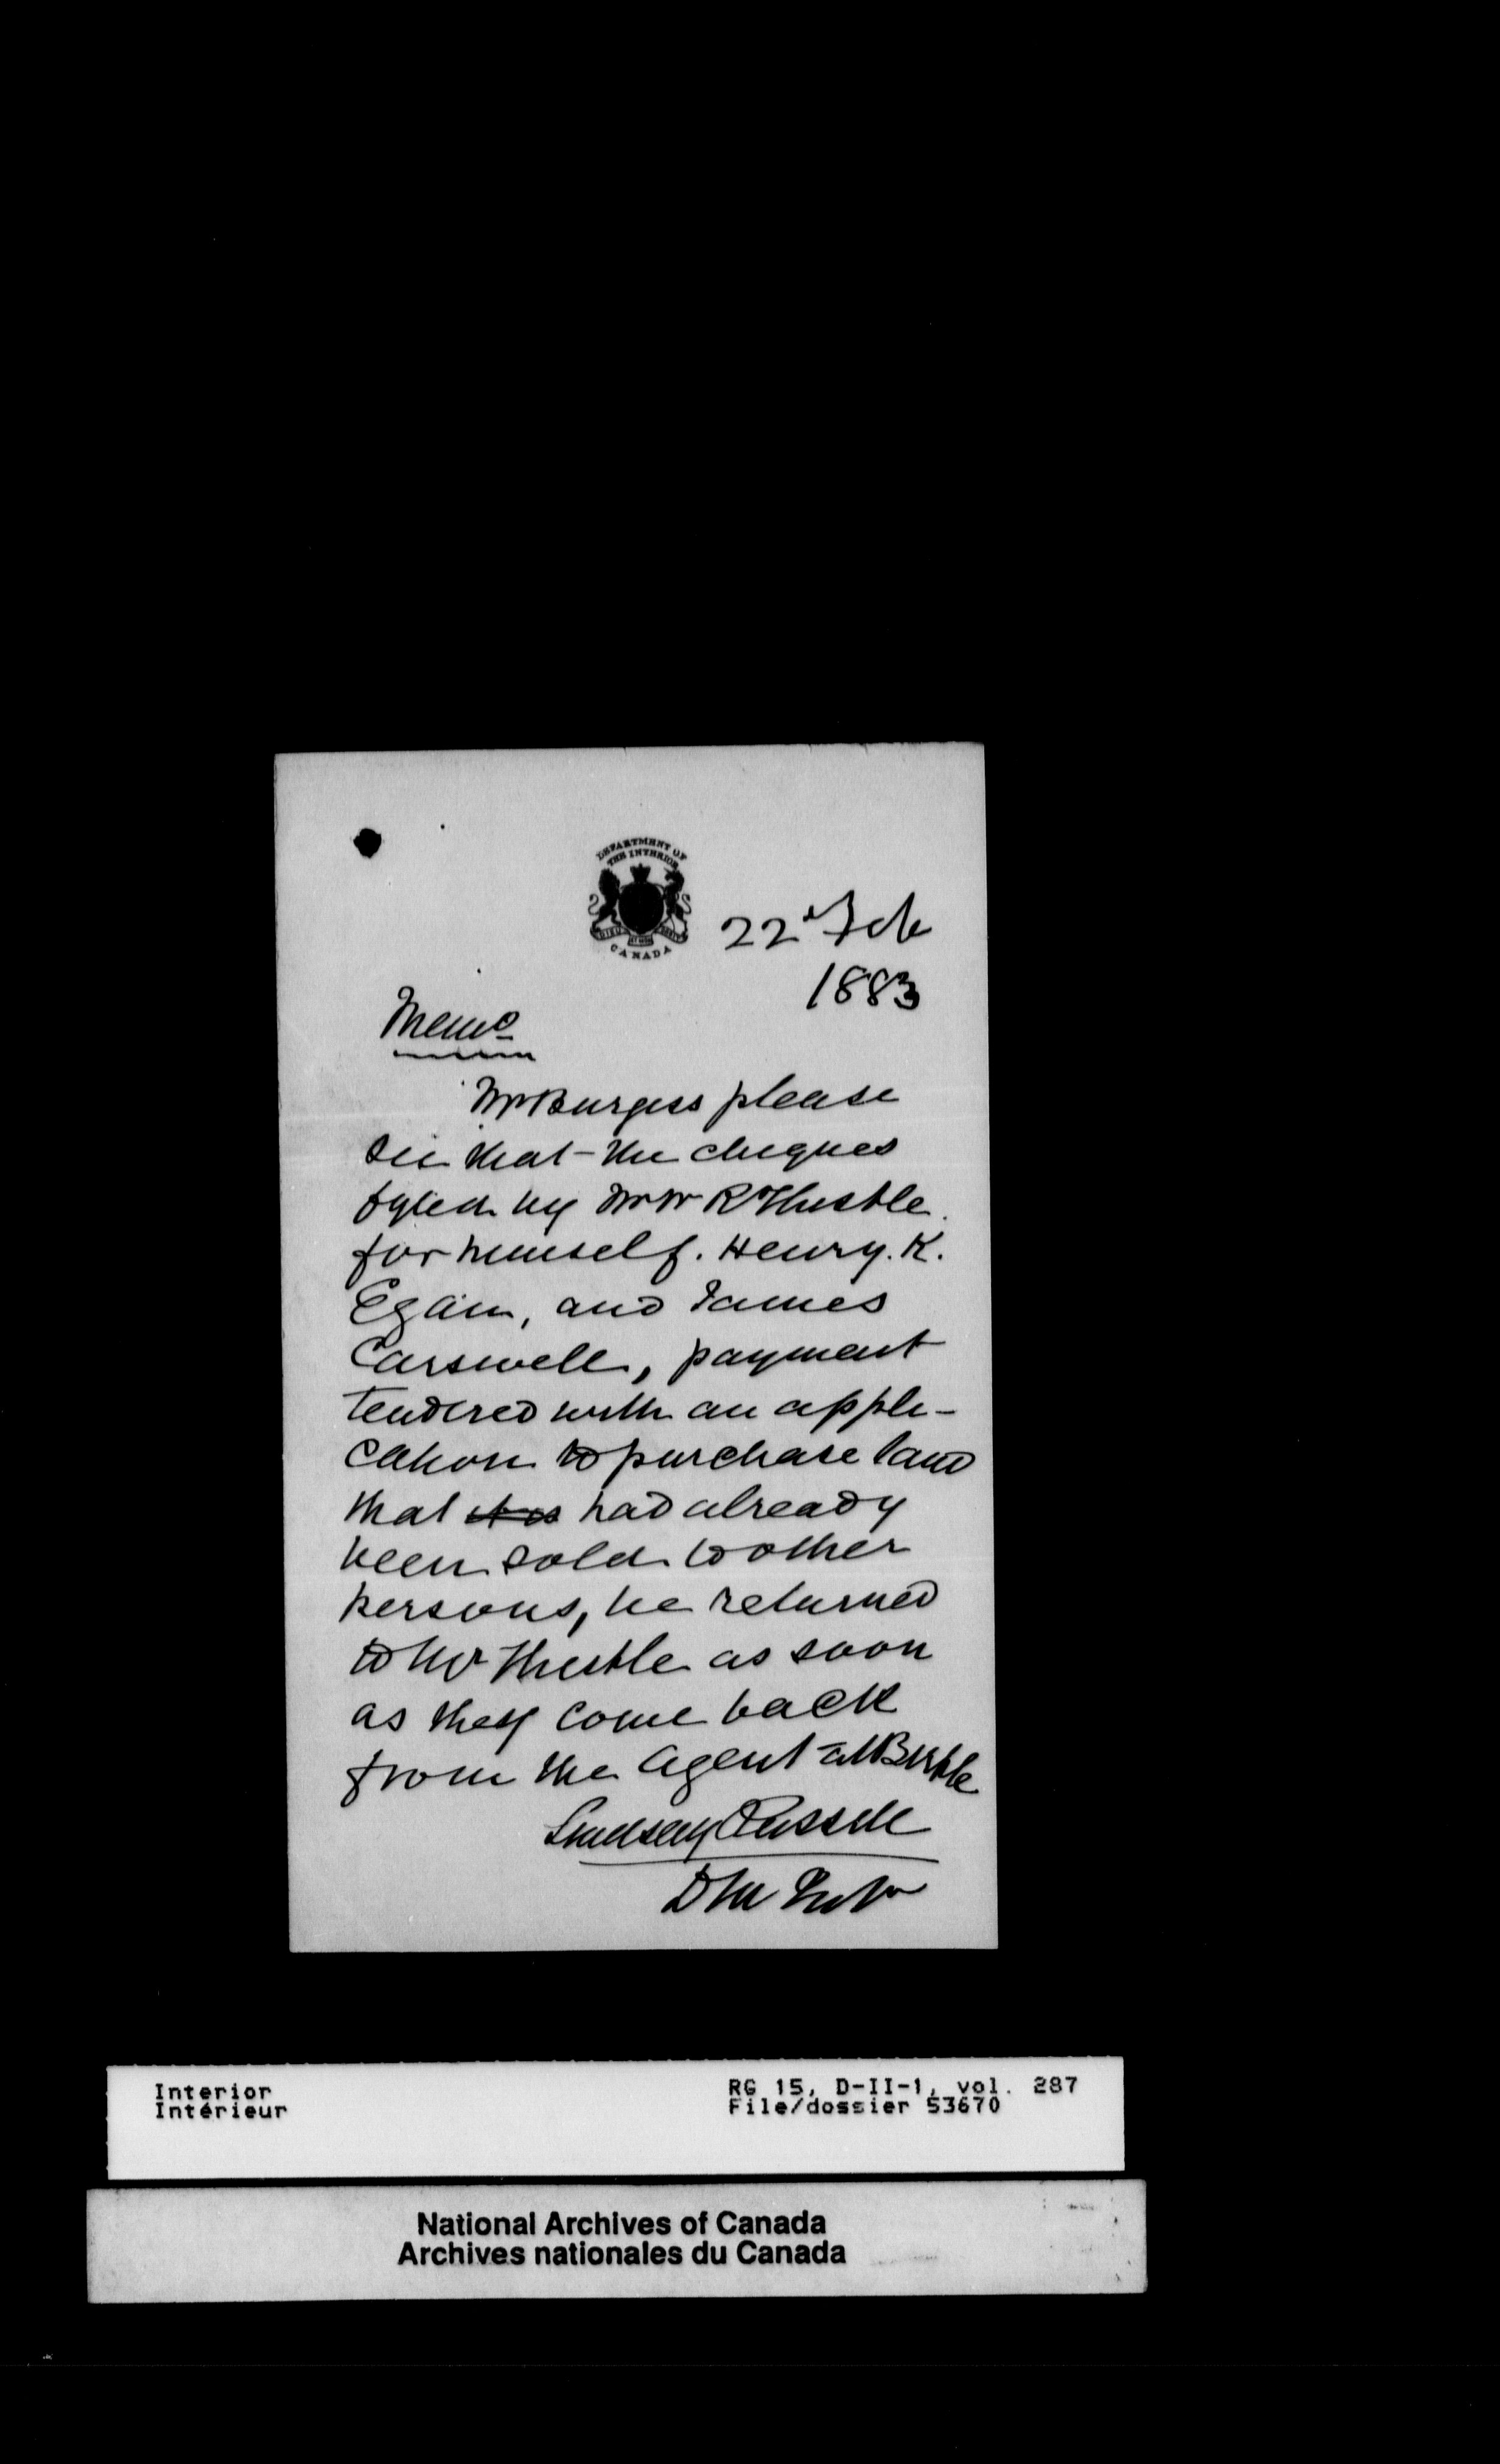 DEPARTMENT OF
THE INTERIOR
CANADA
22d Feb
1883
Memo
Mr Burgess please
see that the cheques
fyled by Mr W R Thistle
for himself. Henry. K.
Egan, and James
Carswell, payment
tendered with an appli-
cation to purchase land
that it is had already
been sold to other
persons, be returned
to Mr Thistle as soon
as they come back
from the agent at Birtle
Lindsay Russell
D M Intr
Interior
Intérieur
RG 15, D-II-1, vol. 287
File/dossier 53670
National Archives of Canada
Archives nationales du Canada